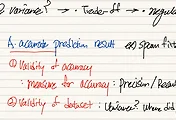 variance? → Trade off → regula
A. accurate prediction result ex) spam filt
① Validity of accuracy
: measure for accuracy : Precision / Recal
② Validity of dataset : Variance? where did